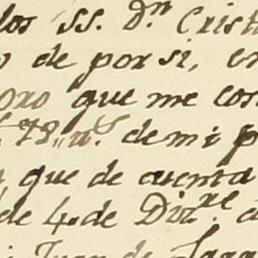 los SS. Dn. Crist
de por si, en
oro que me con
78,, rs. de mi p
que de cuenta
de 4 de Dizre. d
Juan de Lara